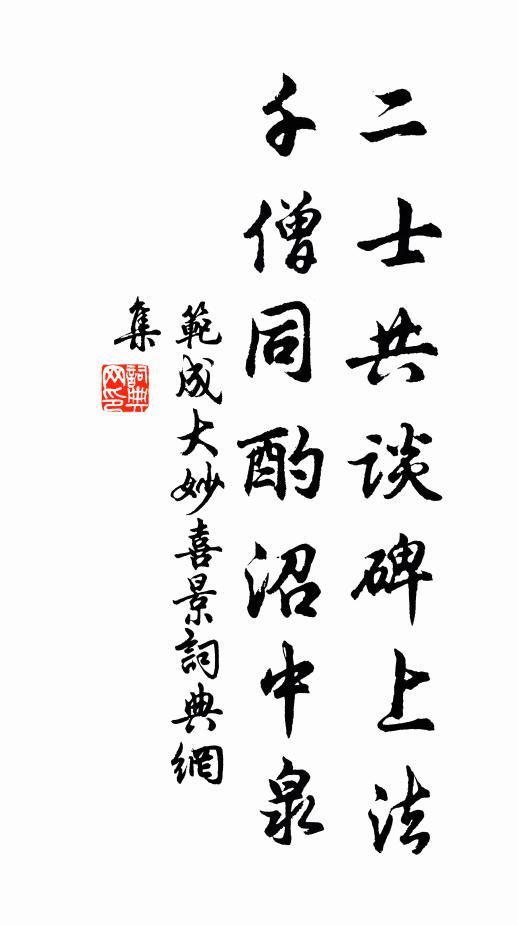 二士共谈碑上法
千僧同酌沼中泉
範成大妙喜景詞典網
集
詞典网印